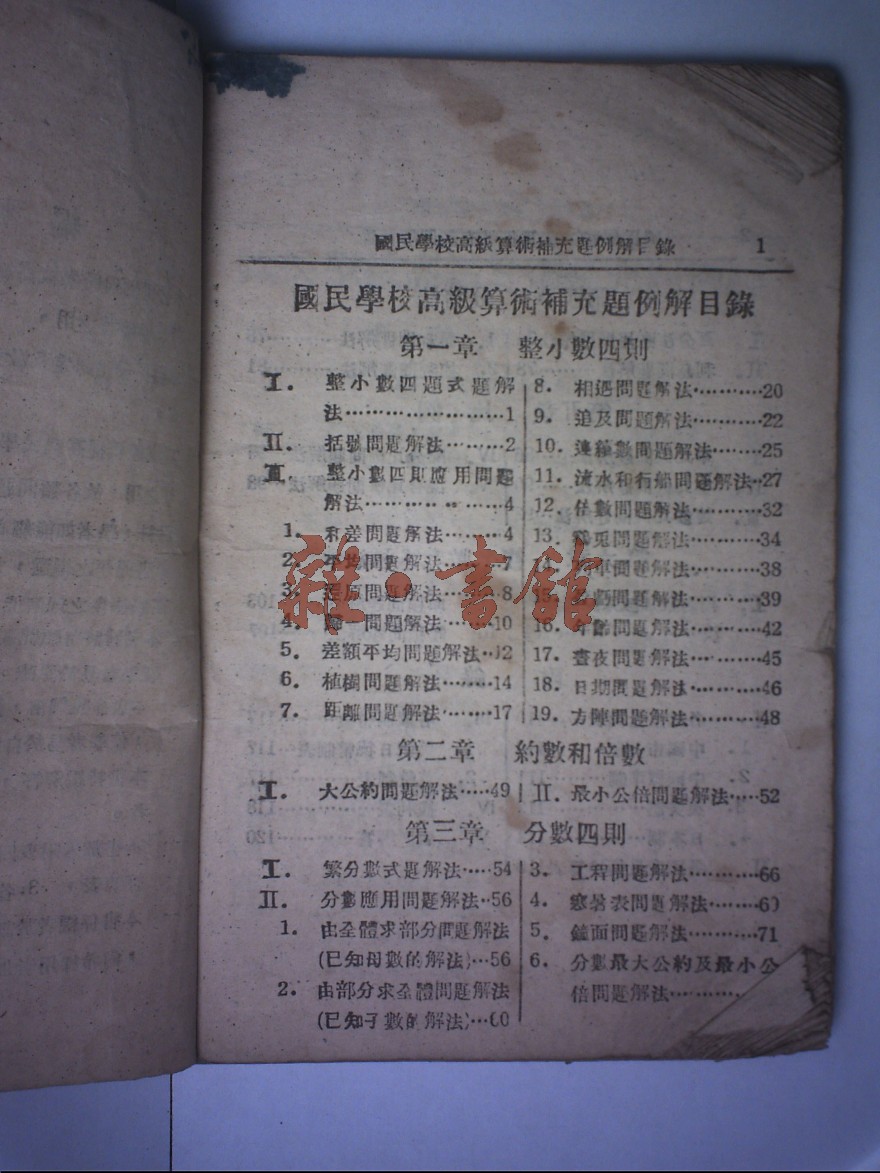 國民學校高級算術補充題例解目錄 1
國民學校高級算術補充題例解目錄
第一章 整小數四則
I. 整小數四題式題解
法………………1
II. 括號問題解法………2
III. 整小數四則應用問題
解法………………4
1. 和差問題解法………4
2. 平均問題解法………7
3. 還原問題解法………8
4. 歸一問題解法………10
5. 差額平均問題解法…12
6. 植樹問題解法………14
7. 距離問題解法………17
8. 相遇問題解法…………20
9. 追及問題解法…………22
10. 連續數問題解法………25
11. 流水和行船問題解法…27
12. 倍數問題解法…………32
13. 雞兎問題解法…………34
14. 問題解法…………38
15. 問題解法…………39
16. 年齡問題解法…………42
17. 晝夜問題解法…………45
18. 日期問題解法…………46
19. 方陣問題解法…………48
第二章 約數和倍數
I. 大公約問題解法……49
II. 最小公倍問題解法……52
第三章 分數四則
I. 繁分數式題解法……54
II. 分數應用問題解法…56
1. 由全體求部分問題解法
(已知母數的解法)…56
2. 由部分求全體問題解法
(已知子數的解法)…60
3. 工程問題解法…………66
4. 寒暑表問題解法………69
5. 鐘面問題解法…………71
6. 分數最大公約及最小公
倍問題解法…………
雜·書館